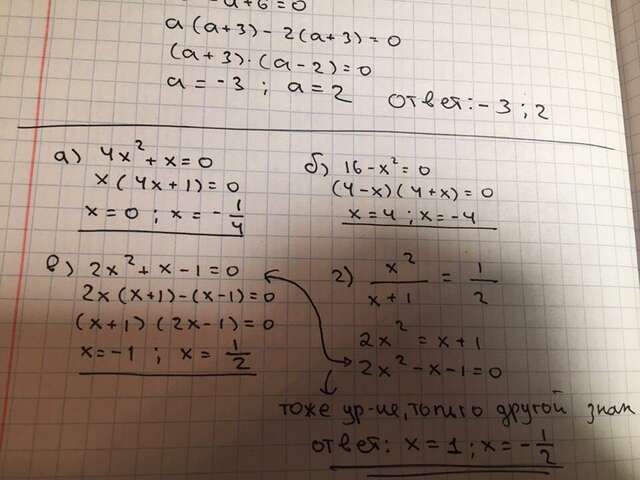 -a+6=0
a(a+3)-2(a+3)=0
(a+3)·(a-2)=0
a=-3 ; a=2
ответ: -3 ; 2
а) 4x²+x=0
x(4x+1)=0
x=0 ; x=-1/4
б) 16-x²=0
(4-x)(4+x)=0
x=4 ; x=-4
в) 2x²+x-1=0
2x(x+1)-(x-1)=0
(x+1)(2x-1)=0
x=-1 ; x=1/2
г) x²/(x+1) = 1/2
2x²=x+1
2x²-x-1=0
тоже ур-ие, только другой знак
ответ: x=1 ; x=-1/2